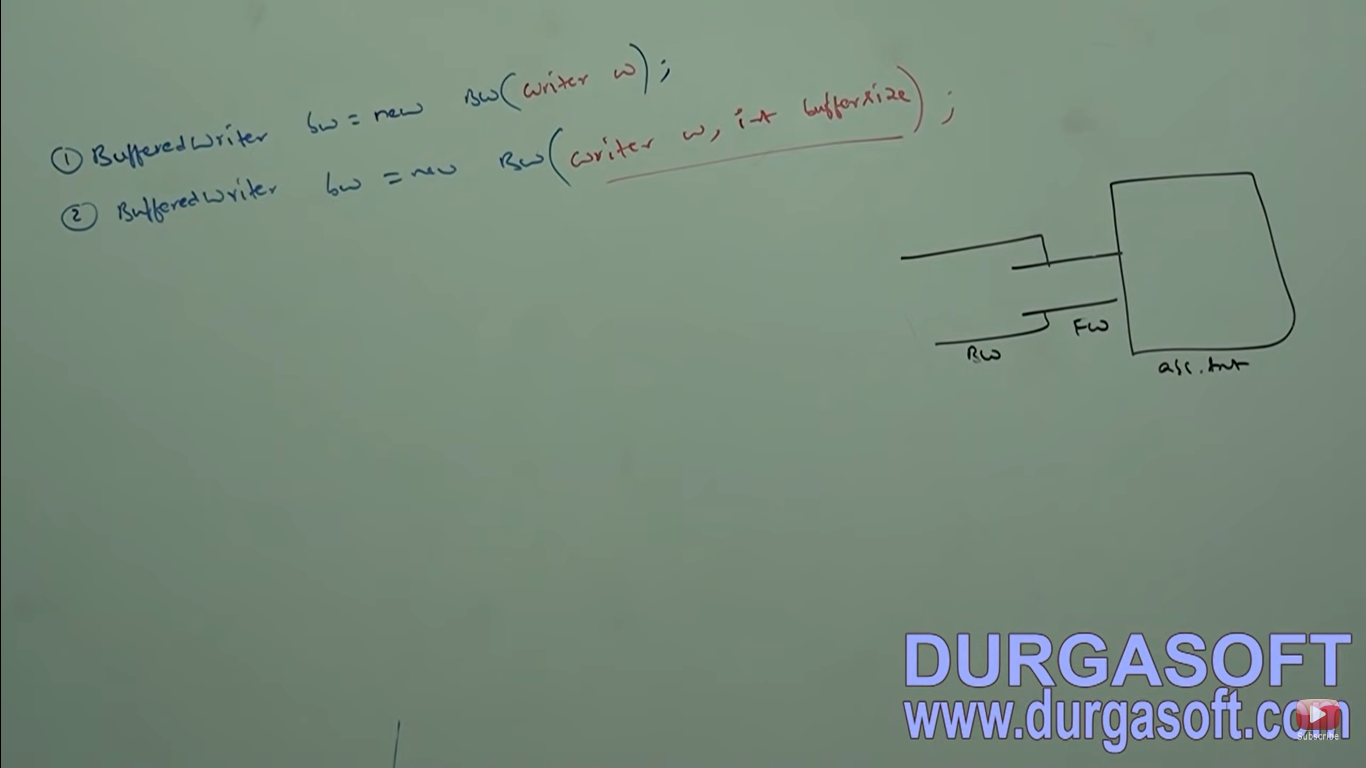 ① BufferedWriter bw = new BW(Writer w);
② BufferedWriter bw = new BW(Writer w, int buffersize);
BW
FW
abc.txt
DURGASOFT
www.durgasoft.com
Subscribe